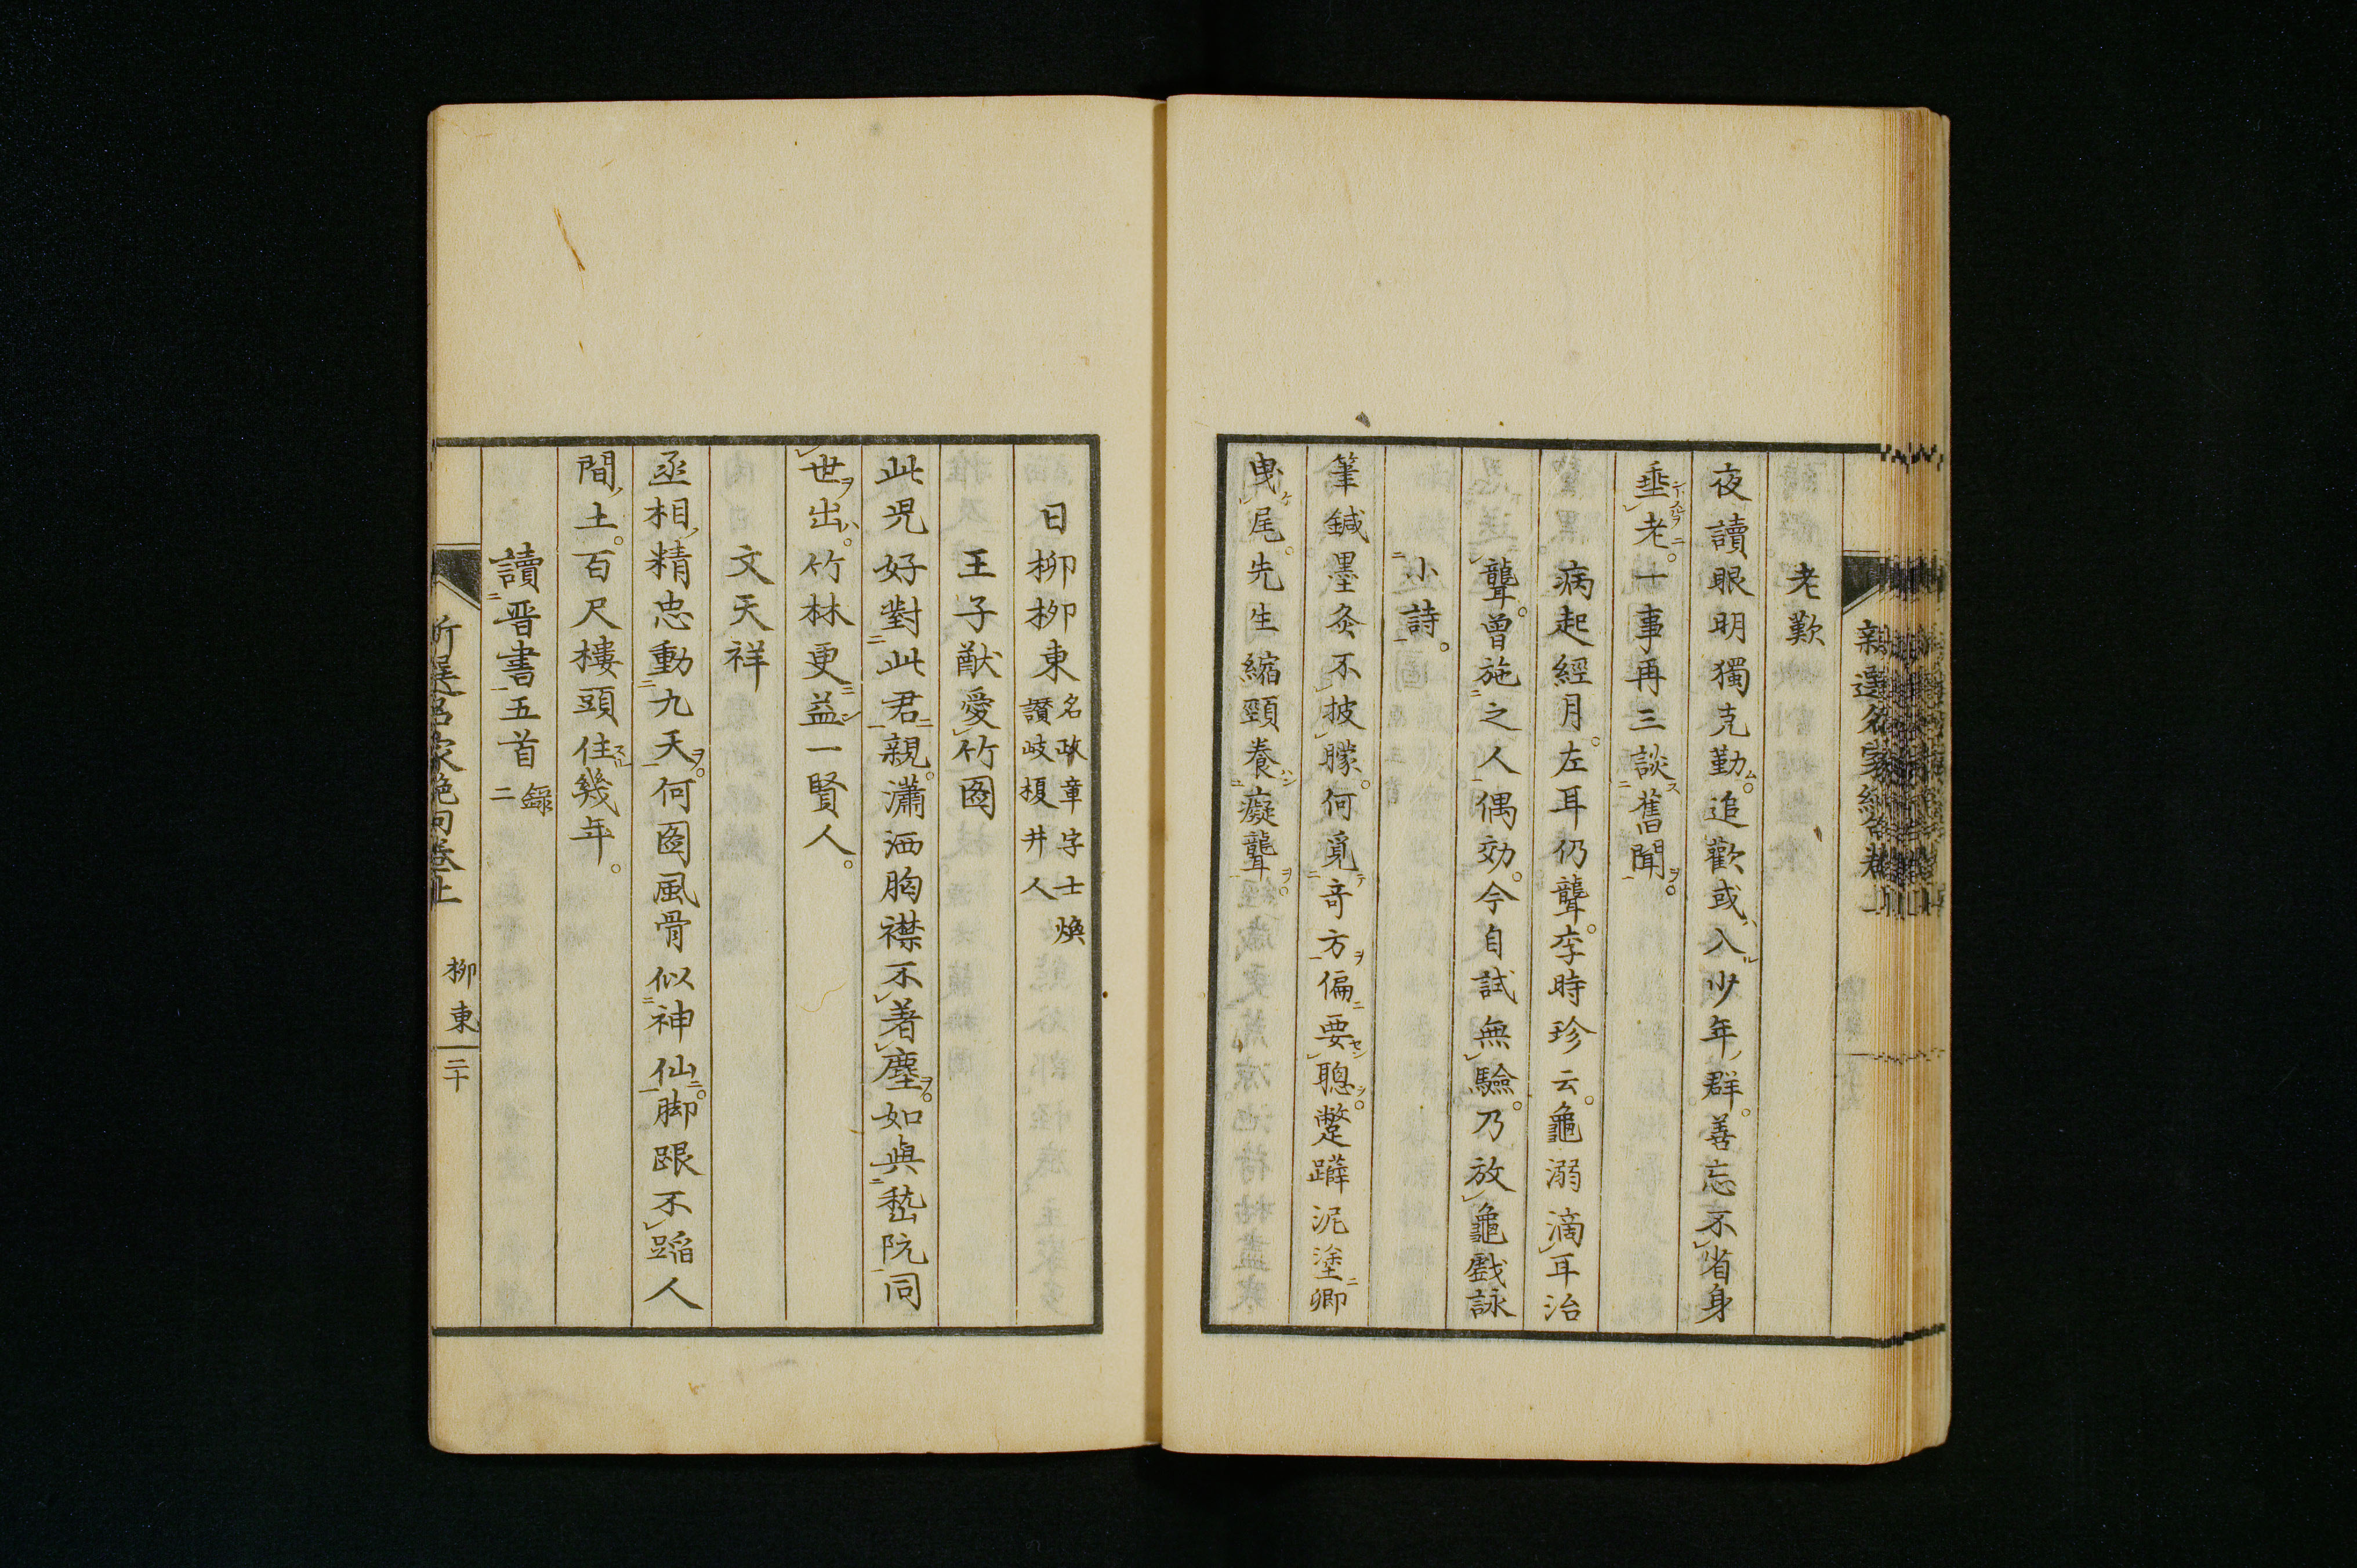 老歎
夜讀眼明獨克勤。追歡或入少年群。善忘不省身
垂老。一事再三談舊聞。
病起經月。左耳仍聾。李時珍云。龜溺滴耳治
聾。曾施之人偶効。今自試無驗。乃放龜戲詠
小詩。
筆鍼墨灸不披朦。何覓奇方偏要聰。蹩躃泥塗卿
曳尾。先生縮頸養癡聾。
日柳柳東 名政章字士煥
讃岐榎井人
王子猷愛竹圖
此児好對此君親。瀟洒胸襟不著塵。如與嵆阮同
世出。竹林更益一賢人。
文天祥
丞相精忠動九天。何圖風骨似神仙。脚跟不蹈人
間土。百尺樓頭住幾年。
讀晋書五首 錄二
新選名家絶句卷上 柳東 二十